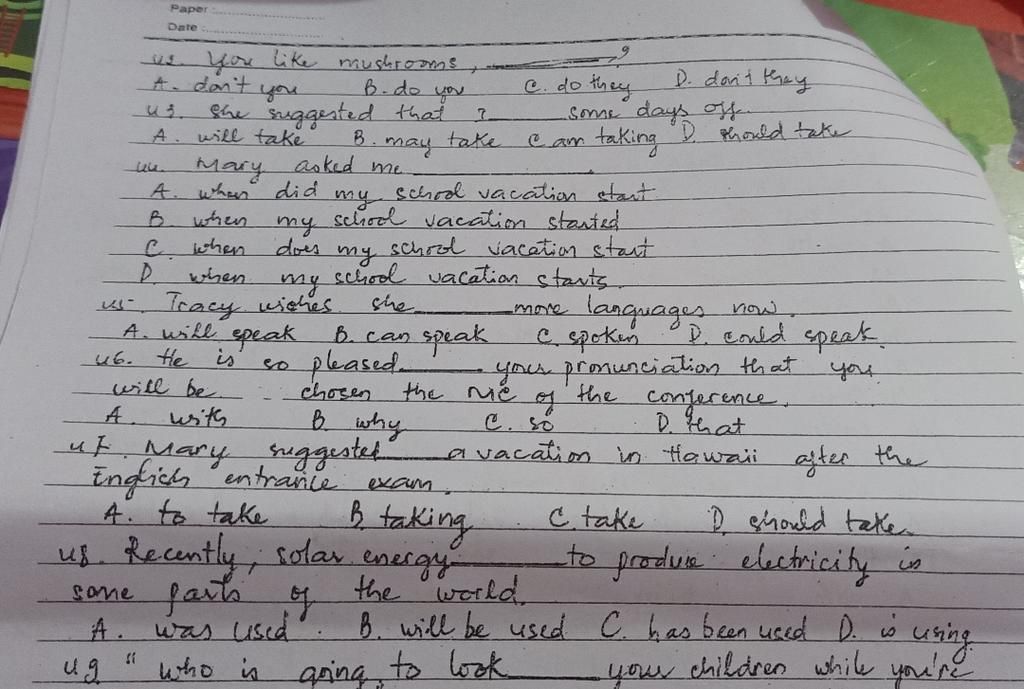 Paper :
Date :
42. You like mushrooms, ______?
A. don't you B. do you C. do they D. don't they
43. She suggested that I ______ some days off.
A. will take B. may take C. am taking D. should take
44. Mary asked me ______.
A. when did my school vacation start
B. when my school vacation started
C. when does my school vacation start
D. when my school vacation starts.
45. Tracy wishes she ______ more languages now.
A. will speak B. can speak C. spoken D. could speak.
46. He is so pleased ______ your pronunciation that you
will be chosen the MC of the conference.
A. with B. why C. so D. that
47. Mary suggested ______ a vacation in Hawaii after the
English entrance exam.
A. to take B. taking C. take D. should take.
48. Recently, solar energy ______ to produce electricity in
some parts of the world.
A. was used. B. will be used C. has been used D. is using
49 " who is going to look ______ your children while you're